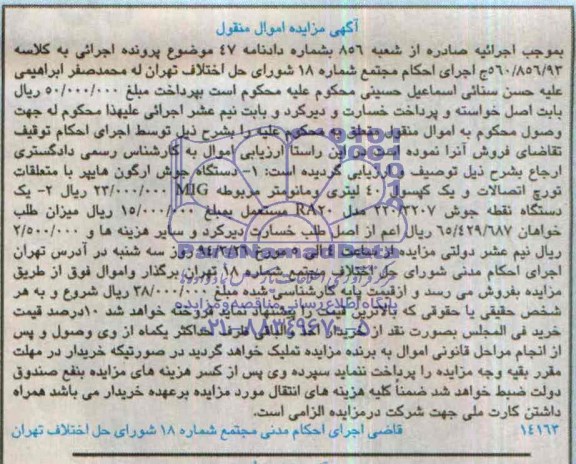 آگهی مزایده اموال منقول
بموجب اجرائیه صادره از شعبه ۸۵۶ بشماره دادنامه ۴۷ موضوع پرونده اجرائی به کلاسه
۵۶۰/۸۵۶/۹۳ج اجرای احکام مجتمع شماره ۱۸ شورای حل اختلاف تهران له محمدصفر ابراهیمی
علیه حسن سنائی اسماعیل حسینی محکوم علیه محکوم است بپرداخت مبلغ ۵۰/۰۰۰/۰۰۰ ریال
بابت اصل خواسته و پرداخت خسارت و دیرکرد و بابت نیم عشر اجرائی علیهذا محکوم له جهت
وصول محکوم به اموال منقول متعلق به محکوم علیه را بشرح ذیل توسط اجرای احکام توقیف
تقاضای فروش آنرا نموده است در این راستا ارزیابی اموال به کارشناس رسمی دادگستری
ارجاع بشرح ذیل توصیف و ارزیابی گردیده است: ۱- دستگاه جوش ارگون هایپر با متعلقات
تورچ اتصالات و یک کپسول ۴۰ لیتری ومانومتر مربوطه MIG ۲۳/۰۰۰/۰۰۰ ریال ۲- یک
دستگاه نقطه جوش ۲۲۰/۳۲۰۷ مدل RA۲۰ مستعمل بمبلغ ۱۵/۰۰۰/۰۰۰ ریال میزان طلب
خواهان ۶۵/۴۲۹/۶۸۷ ریال اعم از اصل طلب خسارت دیرکرد و سایر هزینه ها و ۲/۵۰۰/۰۰۰
ریال نیم عشر دولتی مزایده از ساعت الی ۹ مورخ روز سه شنبه در آدرس تهران
اجرای احکام مدنی شورای حل اختلاف مجتمع شماره ۱۸ تهران برگذار واموال فوق از طریق
مزایده بفروش می رسد و ازقیمت پایه کارشناسی شده مبلغ ۳۸/۰۰۰/۰۰۰ ریال شروع و به هر
شخص حقیقی یا حقوقی که بالاترین قیمت را پیشنهاد نماید فروخته خواهد شد ۱۰درصد قیمت
خرید فی المجلس بصورت نقد از خریدار اخذ والباقی ظرف حداکثر یکماه از وی وصول و پس
از انجام مراحل قانونی اموال به برنده مزایده تملیک خواهد گردید در صورتیکه خریدار در مهلت
مقرر بقیه وجه مزایده را پرداخت ننماید سپرده وی پس از کسر هزینه های مزایده بنفع صندوق
دولت ضبط خواهد شد ضمناً کلیه هزینه های انتقال مورد مزایده برعهده خریدار می باشد همراه
داشتن کارت ملی جهت شرکت درمزایده الزامی است.
۱۴۱۶۳ قاضی اجرای احکام مدنی مجتمع شماره ۱۸ شورای حل اختلاف تهران
ParsNamadData
پایگاه اطلاع رسانی مناقصه و مزایده
۰۲۱-۸۸۳۴۹۶۷۰-۵